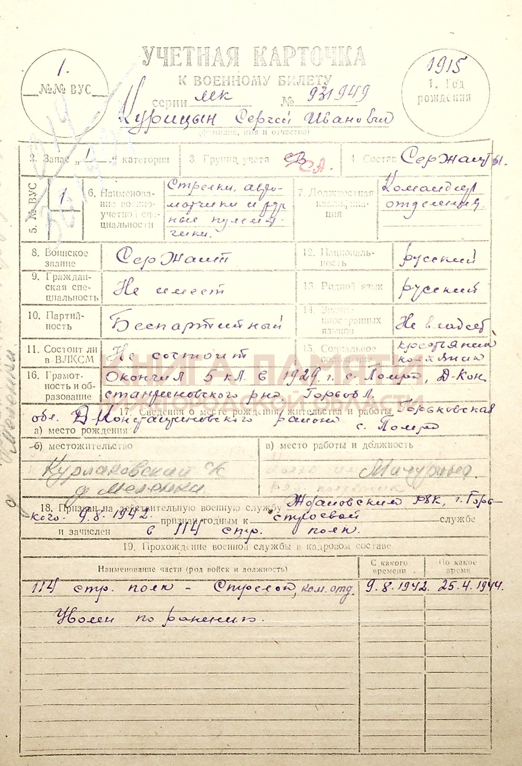 УЧЕТНАЯ КАРТОЧКА
К ВОЕННОМУ БИЛЕТУ
серии МК № 931949
1.
№№ ВУС
1915
1. Год рождения
Курицын Сергей Иванович
(фамилия, имя и отчество)
2. Запас „1“ категории
3. Группа учета СА.
4. Состав Сержанты.
5. № ВУС
1
6. Наименование военно-учетной специальности
Стрелки, автоматчики и ручные пулеметчики.
7. Должностная квалификация
Командир отделения.
8. Воинское звание
Сержант
12. Националь-ность
русский
9. Граждан-ская спе-циальность
Не имеет
13. Родной язык
русский
10. Партий-ность
Беспартийный
14. Знание иностранных языков
Не владеет
11. Состоит ли в ВЛКСМ
Не состоит
15. Социальное
крестьянин колхозник
16. Грамот-ность и об-разование
Окончил 5 кл. в 1929 г. с. Ломро, Д-Кон-
стантиновского р-на, Горьк.
17. Сведения о месте рождения, жительства и работы
а) место рождения
Горьковская
обл. Д-Константиновского район
с. Ломро
КНИГА ПАМЯТИ
б) местожительство
в) место работы и должность
д Меленки
18. Призван на действительную военную службу
РВК, г. Горь-
кого. 9.8.1942.
признан годным к строевой службе
и зачислен в 114 стр. полк.
19. Прохождение военной службы в кадровом составе
Наименование части (род войск и должность)
С какого времени
По какое время
114 стр. полк – Стрелок, ком. отд.
9.8.1942.
25.4.1944.
Уволен по ранению.